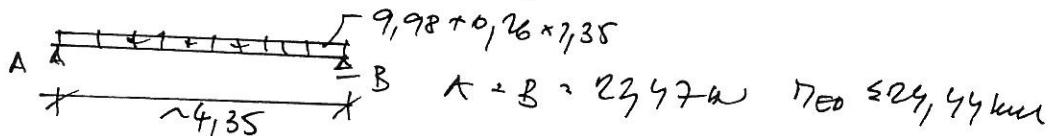 9,98 + 0,26 × 1,35
A B A = B = 22,47 kN M_ED ≤ 24,44 kNm
~4,35